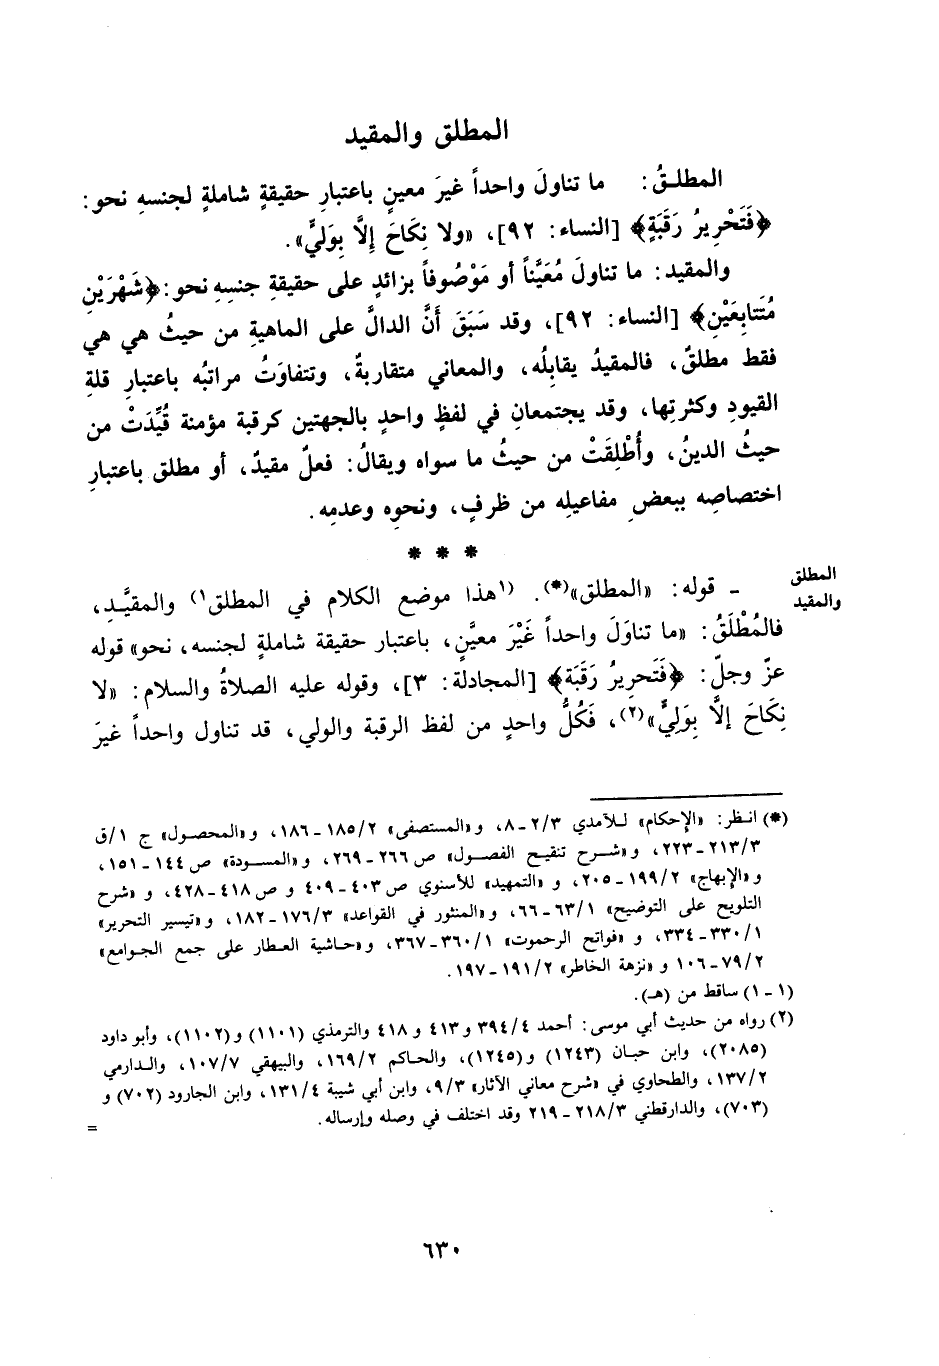 المطلق والمقيد
المطلـقُ: ما تناولَ واحداً غيرَ معينٍ باعتبارِ حقيقةٍ شاملةٍ لجنسهِ نحو:
﴿فَتَحْرِيرُ رَقَبَةٍ﴾ [النساء: ٩٢]، «ولا نِكَاحَ إِلاَّ بِوَليٍّ».
والمقيد: ما تناولَ مُعَيَّناً أو مَوْصُوفاً بزائدٍ على حقيقةِ جنسِهِ نحو: ﴿شَهْرَيْنِ
مُتَتابِعَيْنِ﴾ [النساء: ٩٢]، وقد سَبَقَ أَنَّ الدالَّ على الماهيةِ من حيثُ هي هي
فقط مطلقٌ، فالمقيدُ يقابلُه، والمعاني متقاربةٌ، وتتفاوَتُ مراتبُه باعتبارِ قلةِ
القيودِ وكثرتِها، وقد يجتمعانِ في لفظٍ واحدٍ بالجهتين كرقبة مؤمنة قُيِّدَتْ من
حيثُ الدينُ، وأُطْلِقَتْ من حيثُ ما سواه ويقالُ: فعلٌ مقيدٌ، أو مطلق باعتبارِ
اختصاصِه ببعضِ مفاعيلِه من ظرفٍ، ونحوِه وعدمِه.
* * *
المطلق
والمقيد
ـ قوله: «المطلق»(*). (١هذا موضع الكلام في المطلق١) والمقيَّـدِ،
فالمُطْلَقُ: «ما تناوَلَ واحداً غَيْرَ معيَّنٍ، باعتبار حقيقة شاملة لجنسه، نحو» قوله
عزّ وجلّ: ﴿فَتَحرِيرُ رَقَبَة﴾ [المجادلة: ٣]، وقوله عليه الصلاةُ والسلام: «لا
نِكَاحَ إلاَّ بِوَلِيٍّ»(٢)، فَكُلُّ واحدٍ من لفظ الرقبة والولي، قد تناول واحداً غيرَ
(*) انـظر: «الإحكام» لـلآمدي ٣/٢ـ٨، و«المستصفى» ٢/١٨٥ـ١٨٦، و«المحصول» ج ١/ق
٣/٢١٣ـ٢٢٣، و«شـرح تنقيح الفصول» ص٢٦٦ـ٢٦٩، و«المسـودة» ص١٤٤ـ١٥١،
و«الإبهاج» ٢/١٩٩ـ٢٠٥، و«التمهيد» للأسنوي ص٤٠٣ـ٤٠٩ و ص٤١٨ـ٤٢٨، و«شرح
التلويح على التوضيح» ١/٦٣ـ٦٦، و«المنثور في القواعد» ٣/١٧٦ـ١٨٢، و«تيسير التحرير»
١/٣٣٠ـ٣٣٤، و «فواتح الرحموت» ١/٣٦٠ـ٣٦٧، و«حـاشية العـطار على جمع الجـوامع»
٢/٧٩ـ١٠٦ و «نزهة الخاطر» ٢/١٩١ـ١٩٧.
(١ ـ ١) ساقط من (هـ).
(٢) رواه من حديث أبي موسى: أحمد ٤/٣٩٤ و ٤١٣ و ٤١٨ والترمذي (١١٠١) و(١١٠٢)، وأبو داود
(٢٠٨٥)، وابن حبـان (١٢٤٣) و(١٢٤٥)، والحـاكم ٢/١٦٩، والبيهقي ٧/١٠٧، والـدارمي
٢/١٣٧، والطحاوي في «شرح معاني الآثار» ٣/٩، وابن أبي شيبة ٤/١٣١، وابن الجارود (٧٠٢) و
(٧٠٣)، والدارقطني ٣/٢١٨ـ٢١٩ وقد اختلف في وصله وإرساله.
=
٦٣٠